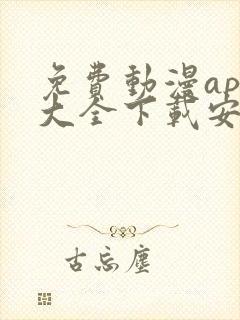 免費動漫ap
大全下載安
古忘塵